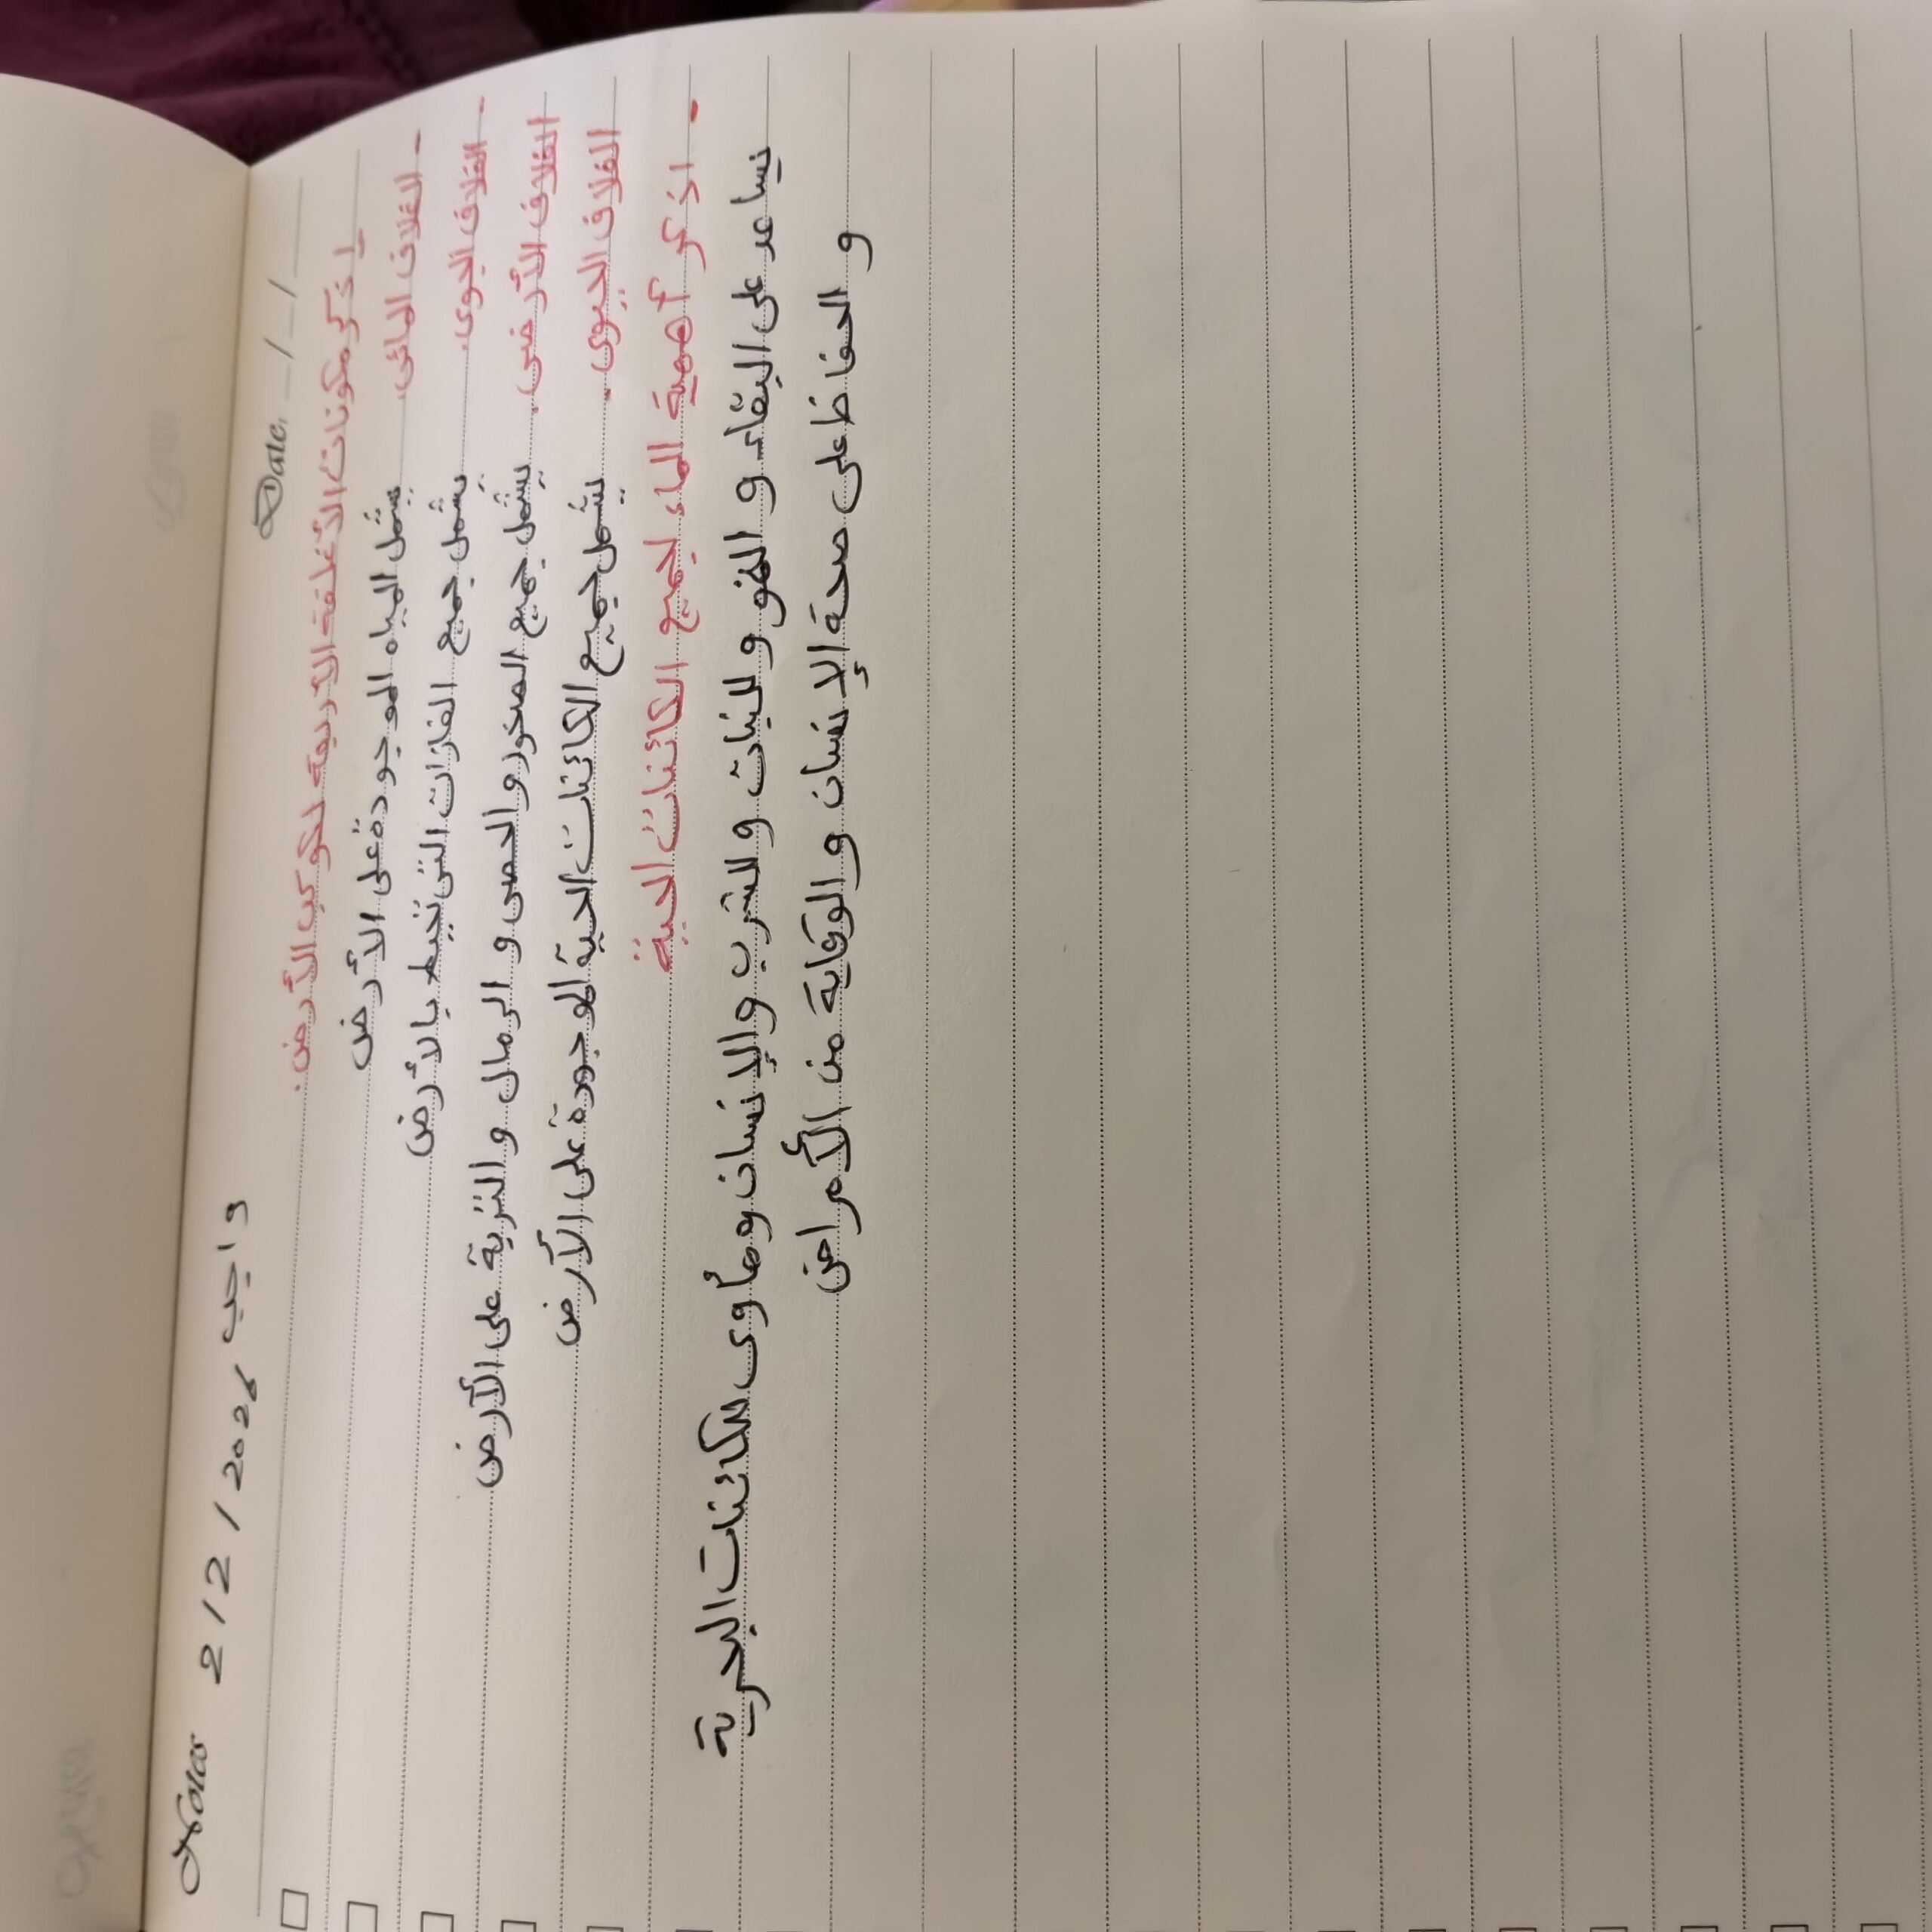 Notes 2/12/2026 واجب
Date. _/_/_
إذكر مكونات الأغلفة الأربعة لكوكب الأرض.
- الغلاف المائى. يشمل المياه الموجودة على الأرض
- الغلاف الجوى. يشمل جميع الغازات التى تحيط بالأرض
الغلاف الأرضى. يشمل جميع الصخور والحصى و الرمال و التربة على الأرض
الغلاف الحيوى. يشمل جميع الكائنات الحية الموجودة على الأرض
- اذكر أهمية الماء لجميع الكائنات الحية
يساعد على البقاء و النمو و للنبات و للشرب والإنسان ومأوى للكائنات البحرية
و الحفاظ على صحة الإنسان والوقاية من الأمراض